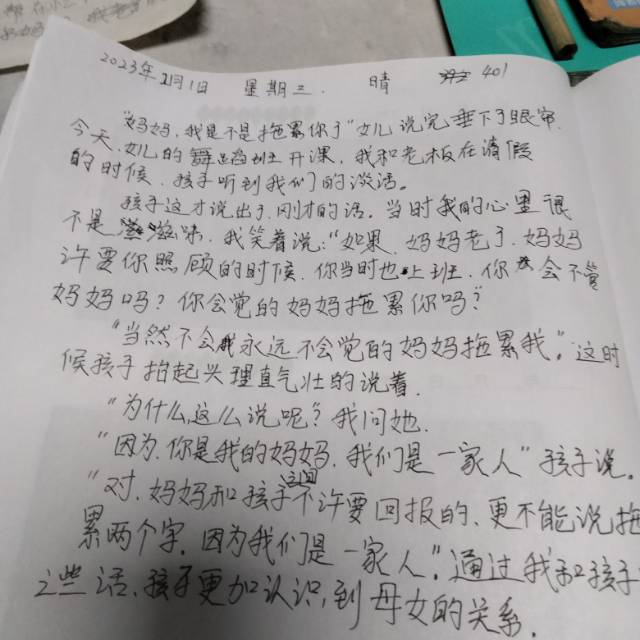 2023年2月1日 星期三. 晴 401
"妈妈,我是不是拖累你了"女儿说完垂下了眼帘.
今天,女儿的舞蹈班开课,我和老板在请假
的时候,孩子听到我们的谈话。
孩子这才说出了刚才的话.当时我的心里很
不是滋味,我笑着说:"如果,妈妈老了,妈妈
许要你照顾的时候,你当时也上班,你会不管
妈妈吗?你会觉的妈妈拖累你吗?"
"当然不会我永远不会觉的妈妈拖累我".这时
候孩子抬起头理直气壮的说着.
"为什么,这么说呢?我问她.
"因为,你是我的妈妈,我们是一家人"孩子说.
"对,妈妈和孩子不许要回报的、更不能说拖
累两个字.因为我们是一家人".通过我和孩子
这些话,孩子更加认识,到母女的关系.